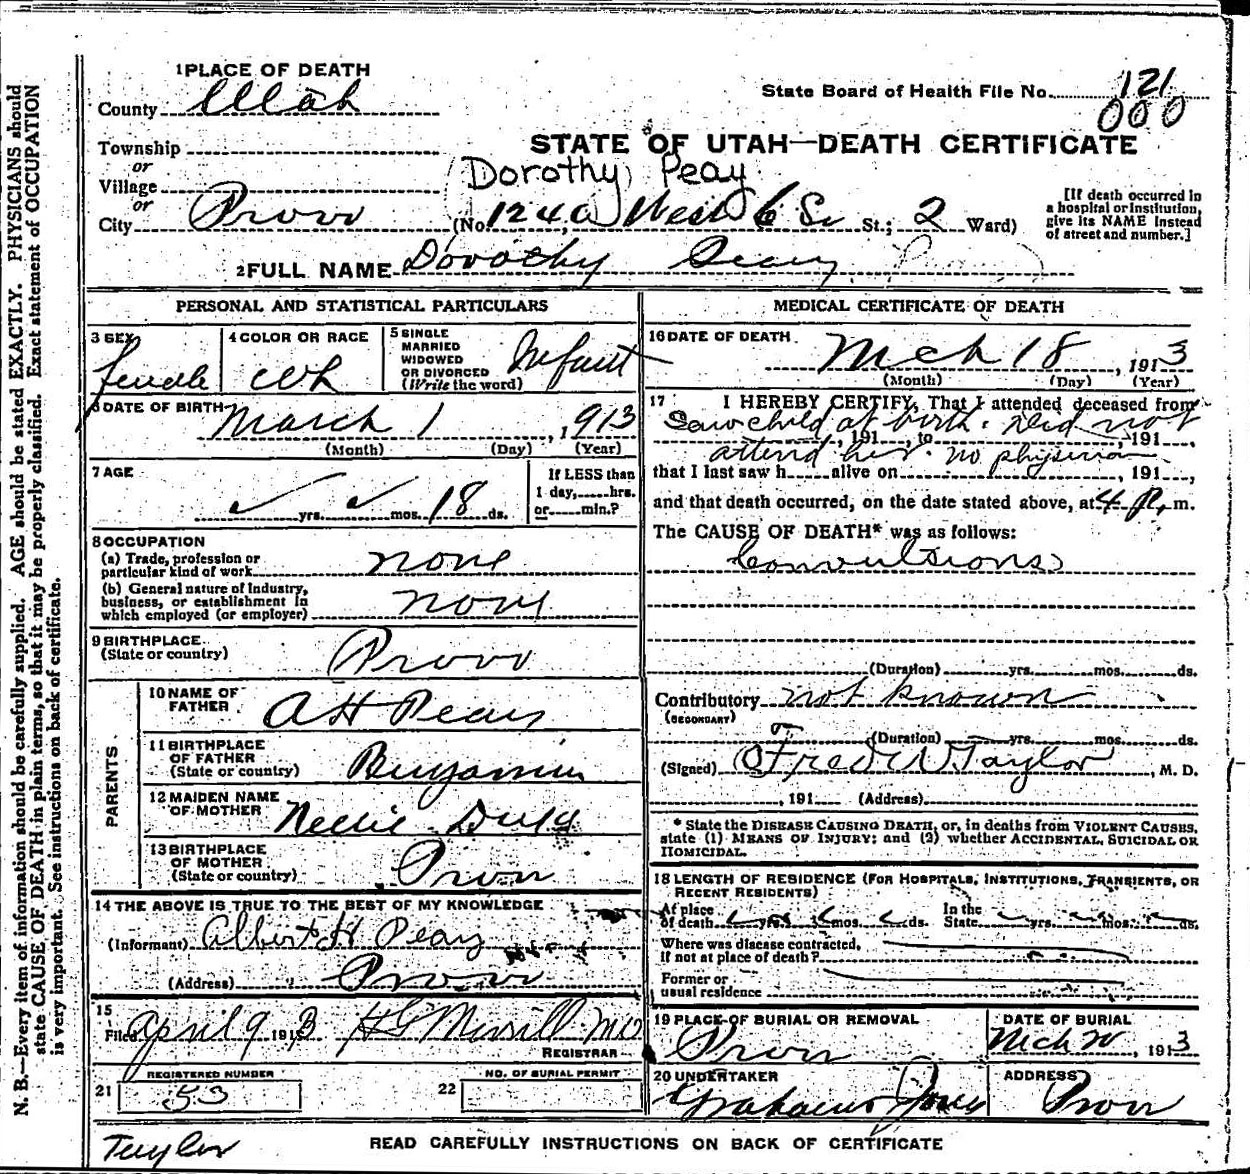 N. B.—Every item of information should be carefully supplied. AGE should be stated EXACTLY. PHYSICIANS should
state CAUSE OF DEATH in plain terms, so that it may be properly classified. Exact statement of OCCUPATION
is very important. See instructions on back of certificate.
1 PLACE OF DEATH
County Utah
State Board of Health File No. 121
000
STATE OF UTAH—DEATH CERTIFICATE
Township
or
Village
or
City Provo
(Dorothy) Peay
(No. 1240 West 6 So St.; 2 Ward)
[If death occurred in
a hospital or institution,
give its NAME instead
of street and number.]
2 FULL NAME Dorothy Peay
PERSONAL AND STATISTICAL PARTICULARS
3 SEX
female
4 COLOR OR RACE
Wh
5 SINGLE
MARRIED
WIDOWED
OR DIVORCED
(Write the word)
Infant
6 DATE OF BIRTH
March 1, 1913
(Month) (Day) (Year)
7 AGE
yrs. mos. 18 ds.
If LESS than
1 day, hrs.
or min.?
8 OCCUPATION
(a) Trade, profession or
particular kind of work none
(b) General nature of Industry,
business, or establishment in
which employed (or employer) none
9 BIRTHPLACE
(State or country) Provo
PARENTS
10 NAME OF
FATHER A H Peay
11 BIRTHPLACE
OF FATHER
(State or country) Benjamin
12 MAIDEN NAME
OF MOTHER Nellie
13 BIRTHPLACE
OF MOTHER
(State or country) Provo
14 THE ABOVE IS TRUE TO THE BEST OF MY KNOWLEDGE
(Informant) Albert H Peay
(Address) Provo
15
Filed April 9 1913 H G Merrill MD
REGISTRAR
REGISTERED NUMBER
21 53
NO. OF BURIAL PERMIT
22
MEDICAL CERTIFICATE OF DEATH
16 DATE OF DEATH
Mch 18, 1913
(Month) (Day) (Year)
17 I HEREBY CERTIFY, That I attended deceased from
Saw child at birth. Did not
, 191 , to , 191 ,
attend her. no physician
that I last saw h alive on , 191 ,
and that death occurred, on the date stated above, at 4 P. m.
The CAUSE OF DEATH* was as follows:
Convulsions
(Duration) yrs. mos. ds.
Contributory not known
(SECONDARY)
(Duration) yrs. mos. ds.
(Signed) Fred W Taylor, M. D.
, 191 (Address)
* State the DISEASE CAUSING DEATH, or, in deaths from VIOLENT CAUSES,
state (1) MEANS OF INJURY; and (2) whether ACCIDENTAL, SUICIDAL OR
HOMICIDAL.
18 LENGTH OF RESIDENCE (FOR HOSPITALS, INSTITUTIONS, TRANSIENTS, OR
RECENT RESIDENTS)
At place
of death yrs. mos. ds.
In the
State yrs. mos. ds.
Where was disease contracted,
If not at place of death?
Former or
usual residence
19 PLACE OF BURIAL OR REMOVAL
Provo
DATE OF BURIAL
Mch 20, 1913
20 UNDERTAKER
ADDRESS
Provo
Taylor
READ CAREFULLY INSTRUCTIONS ON BACK OF CERTIFICATE